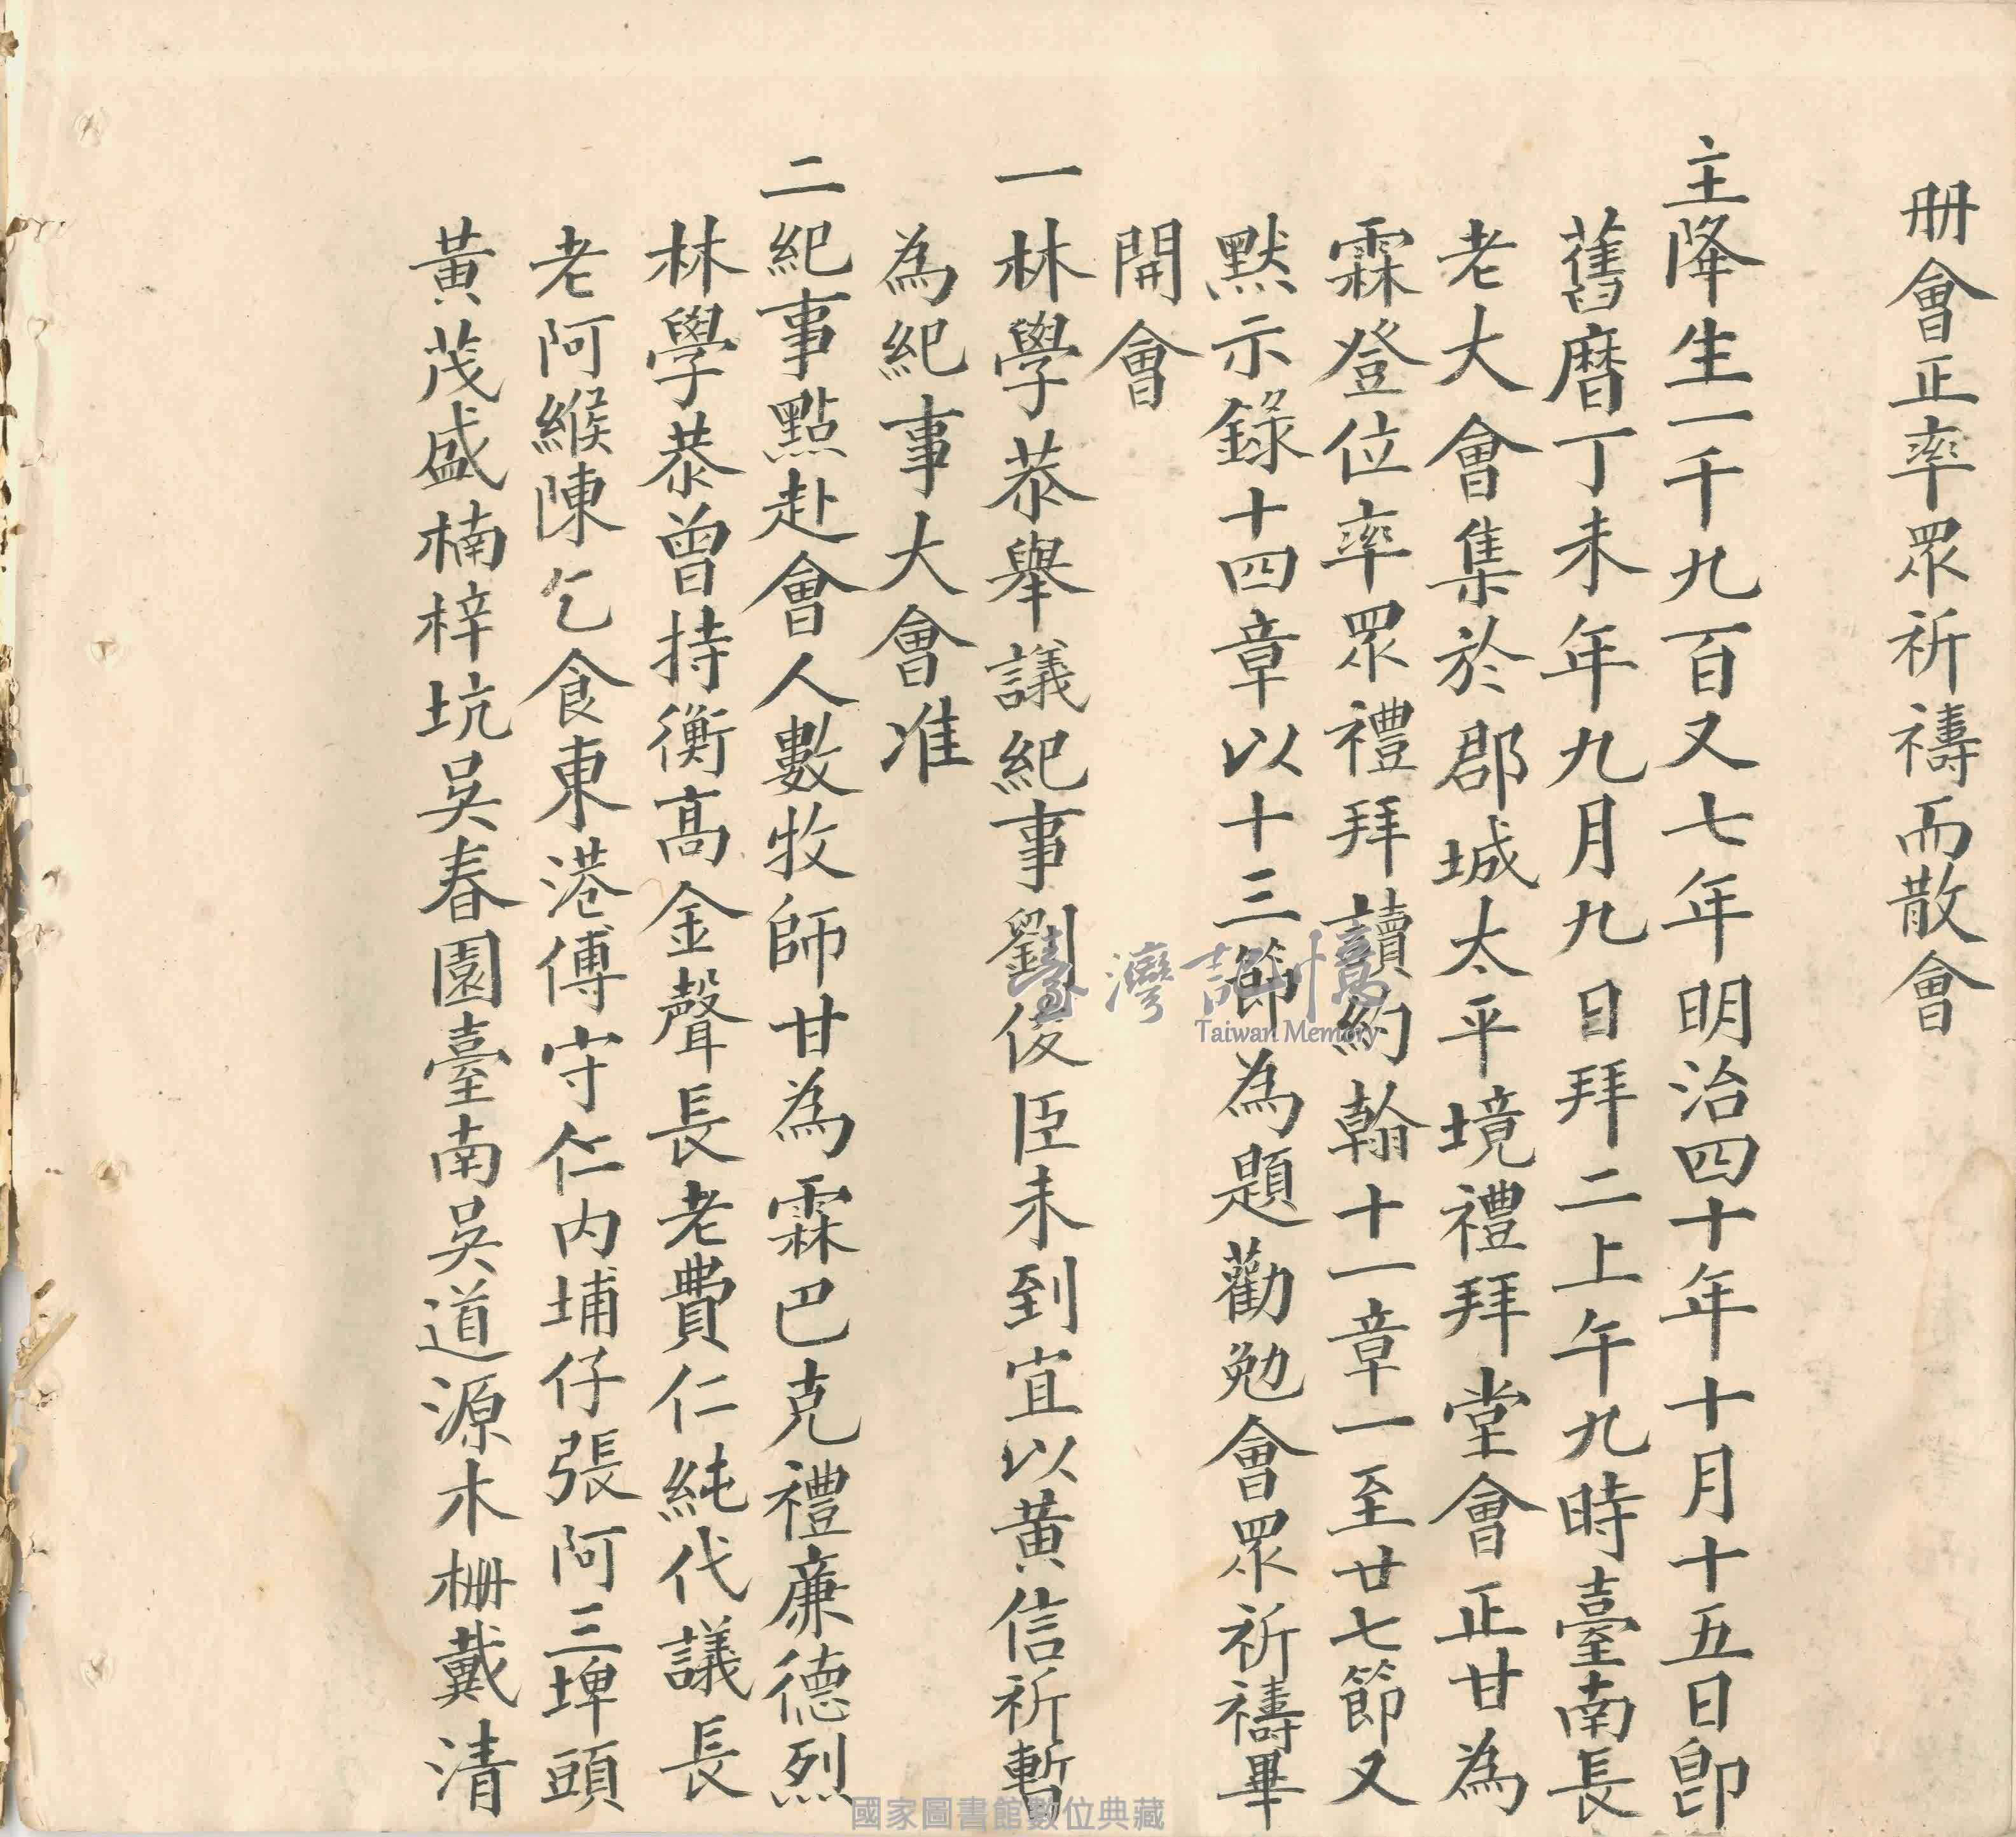 册會正率眾祈禱而散會
主降生一千九百又七年明治四十年十月十五日即
舊曆丁未年九月九日拜二上午九時臺南長
老大會集於郡城太平境禮拜堂會正甘為
霖登位率眾禮拜讀約翰十一章一至廿七節又
默示錄十四章以十三節為題勸勉會眾祈禱畢
開會
一林學恭舉議紀事劉俊臣未到宜以黃信祈暫
為紀事大會准
二紀事點赴會人數牧師甘為霖巴克禮廉德烈
林學恭曾持衡高金聲長老費仁純代議長
老阿緱陳乞食東港傅守仁內埔仔張阿三埤頭
黃茂盛楠梓坑吳春園臺南吳道源木柵戴清
臺灣記憶
Taiwan Memory
國家圖書館數位典藏